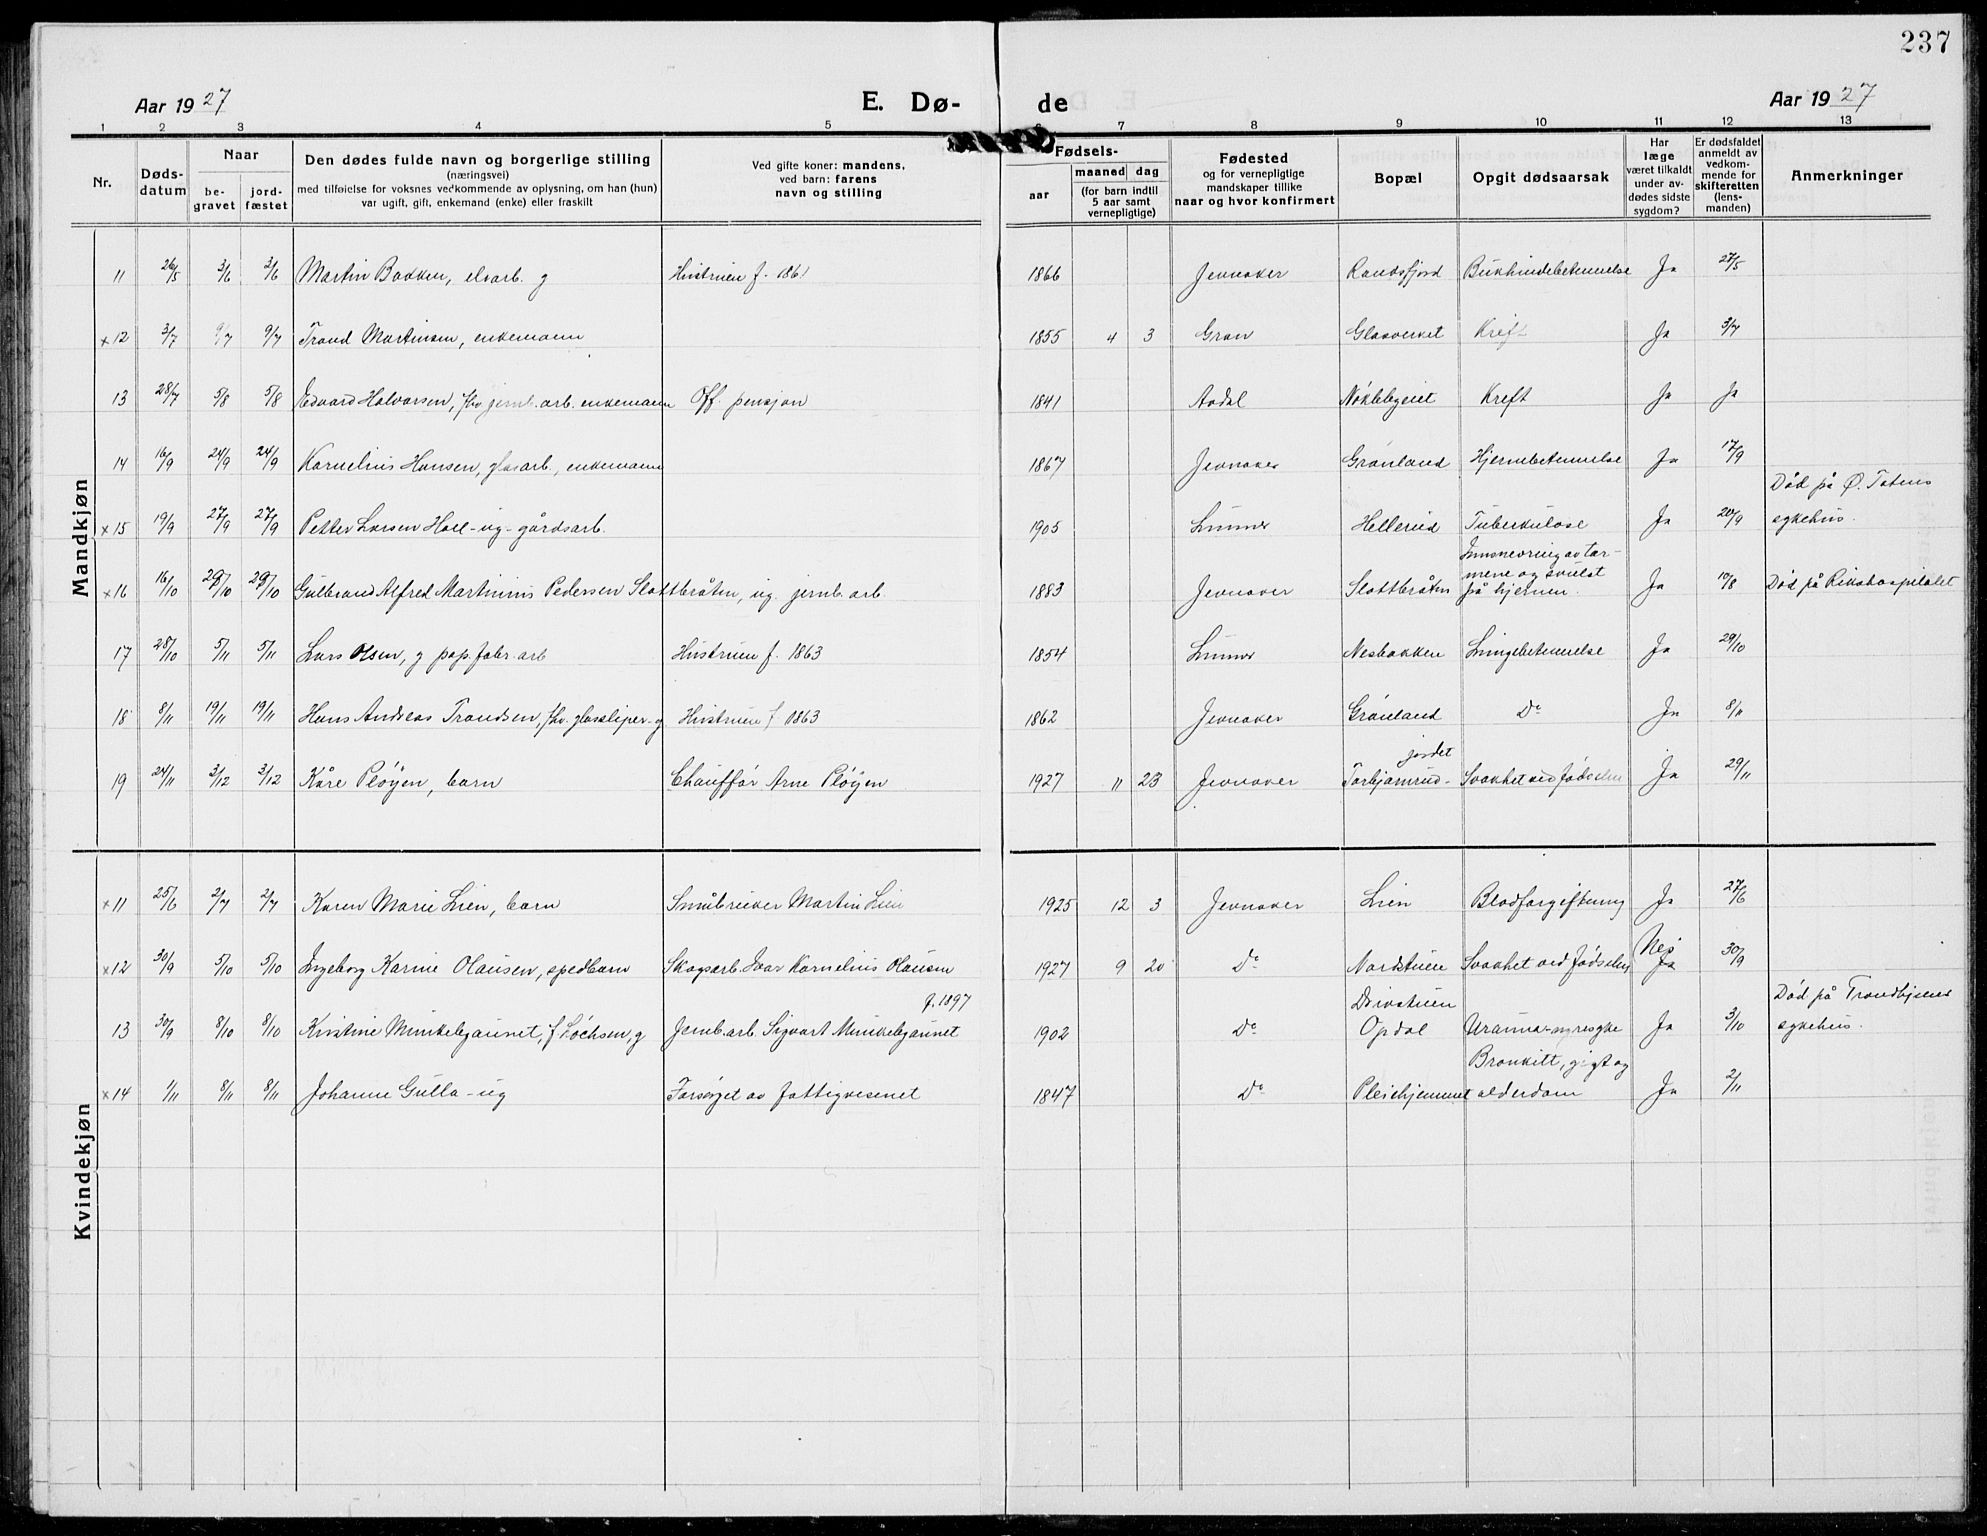 237
Aar 1927 E. Dø- de Aar 1927
1 2 3 4 5 6 7 8 9 10 11 12 13
Nr.
Døds-
datum
Naar
be-
gravet
jord-
fæstet
Den dødes fulde navn og borgerlige stilling
(næringsvei)
med tilføielse for voksnes vedkommende av oplysning, om han (hun)
var ugift, gift, enkemand (enke) eller fraskilt
Ved gifte koner: mandens,
ved barn: farens
navn og stilling
Fødsels-
aar
maaned dag
(for barn indtil
5 aar samt
vernepligtige)
Fødested
og for vernepligtige
mandskaper tillike
naar og hvor konfirmert
Bopæl
Opgit dødsaarsak
Har
læge
været tilkaldt
under av-
dødes sidste
sygdom?
Er dødsfaldet
anmeldt av
vedkom-
mende for
skifteretten
(lens-
manden)
Anmerkninger
Mandkjøn
11 26/5 3/6 3/6 Martin Bakken, elvarb. g Hustruen f. 1861 1866 Jevnaker Randsfjord Bukhindebetennelse Ja 27/5
x12 3/7 9/7 9/7 Trond Martinsen, enkemann 1855 4 3 Gran Glasverket Kreft Ja 3/7
13 28/7 5/8 5/8 Edvard Halvorsen, fhv. jernb.arb. enkemann Off. pensjon 1841 Aadal Nøklebyeiet Kreft Ja Ja
14 16/9 24/9 24/9 Kornelius Hansen, glasarb., enkemann 1867 Jevnaker Grønland Hjernebetennelse Ja 17/9
x15 19/9 27/9 27/9 Petter Larsen Hoel - ug - gårdsarb. 1905 Lunner Hellerud Tuberkulose Ja 20/9 Død på Ø. Totens
sykehus.
x16 16/10 29/10 29/10 Gulbrand Alfred Martinius Pedersen Slottbråten, ug. jernb. arb. 1883 Jevnaker Slottbråten Innsnevring av tar-
mene og svulst
på hjernen. Ja 10/8 Død på Rikshospitalet
17 28/10 5/11 5/11 Lars Olsen, g pap.fabr.arb Hustruen f. 1863 1854 Lunner Nesbakken Lungebetennelse Ja 29/10
18 8/11 19/11 19/11 Hans Andreas Trondsen, fhv. glassliper - g Hustruen f 1863 1862 Jevnaker Grønland Do Ja 8/11
19 24/11 3/12 3/12 Kåre Pløyen, barn Chauffør Arne Pløyen 1927 11 23 Jevnaker Torbjørnrud-
jordet Svakhet ved fødselen Ja 29/11
Kvindekjøn
x11 25/6 2/7 2/7 Karen Marie Lien, barn Småbruker Martin Lien 1925 12 3 Jevnaker Lien Blodforgiftning Ja 27/6
x12 30/9 5/10 5/10 Ingeborg Karine Olausen, spedbarn Skogsarb. Ivar Kornelius Olausen 1927 9 20 Do Nordstuen Svakhet ved fødselen Nei
Ja 30/9
13 30/9 8/10 8/10 Kristine Munkebyaunet, f. Løchsen, g Jernb.arb. Sigvart Munkebyaunet
f. 1897 1902 Do Drivstuen
Opdal Uræmia-nyresyke Ja 3/10 Død på Trondhjems
sykehus.
x14 1/11 8/11 8/11 Johanne Gulla - ug Forsørget av fattigvesenet 1847 Do Pleiehjemmet Bronkitt, gigt og
alderdom Ja 2/11